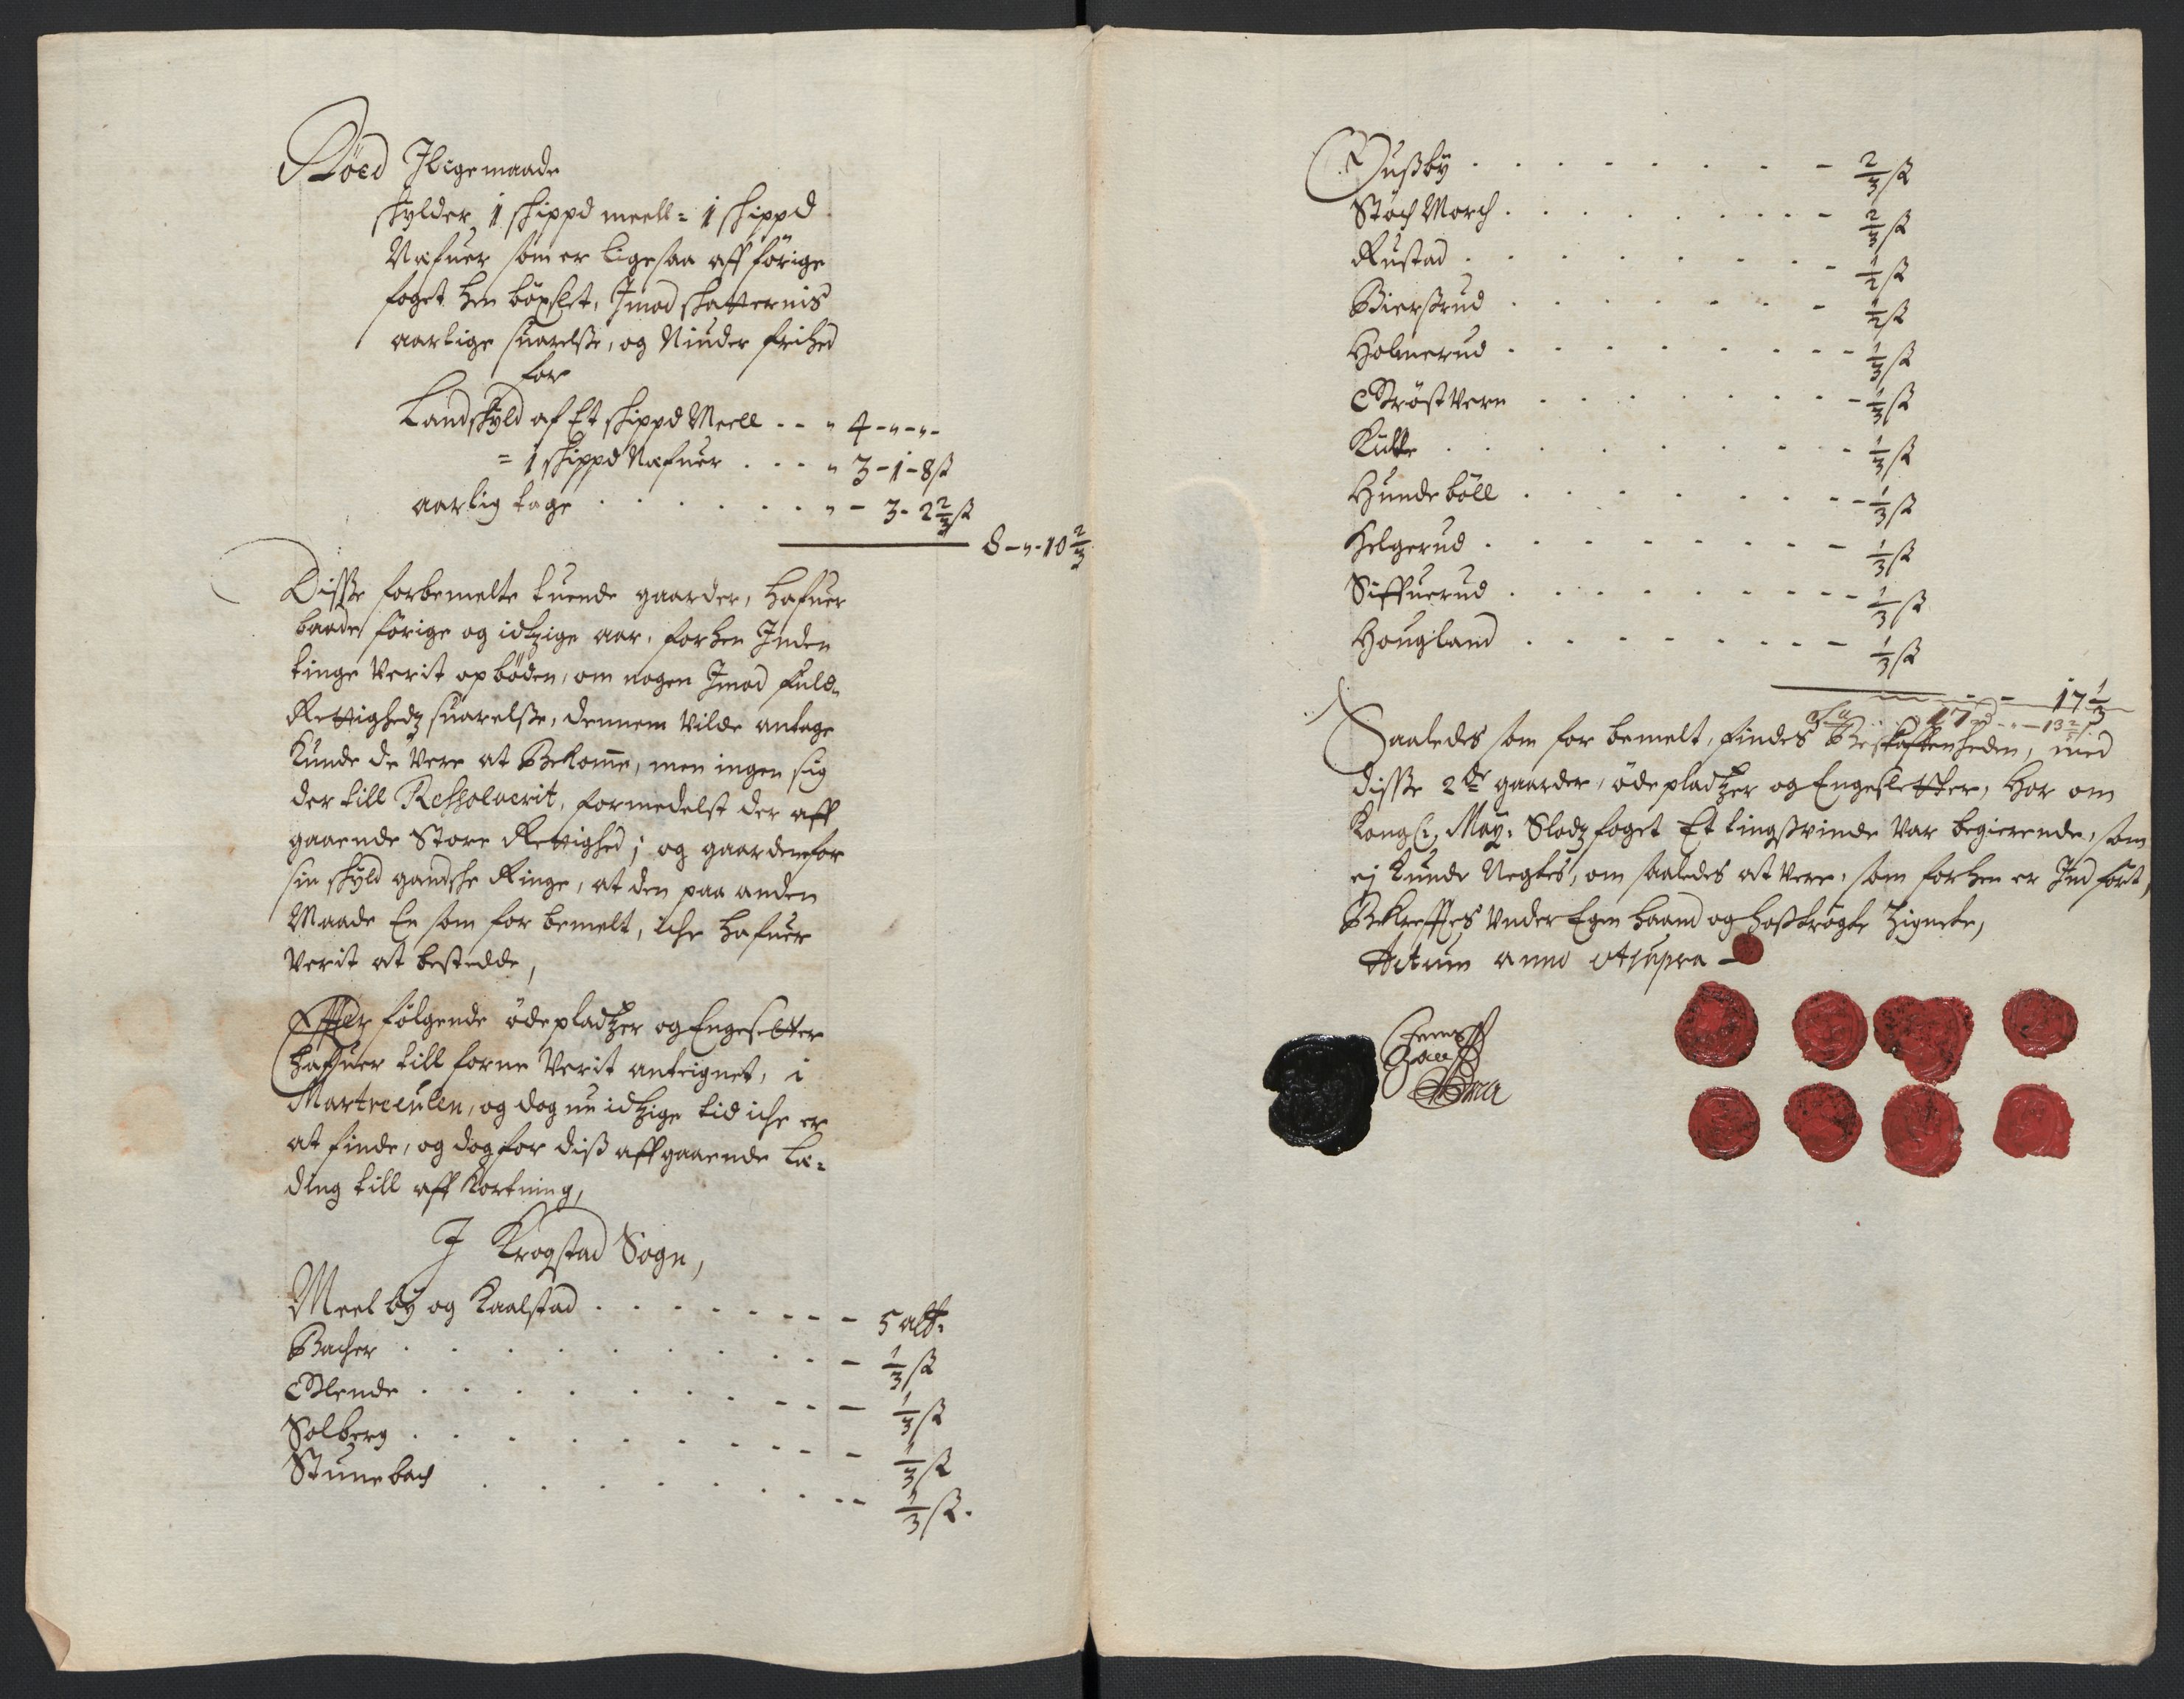 Röed Jligemaade
skylder 1 skippd meell = 1 skippd
Næfuer som er ligesaa aff förige
foget hen böxslet, Jmod skatternis
aarlige suarelsse, og Niuder frihed
for
Landskyld af Et skippd Meell . . " 4 - " - " -
= 1 skippd Næfuer . . . " 3 - 1 - 8 ß
aarlig tage . . . . . . " - 3 - 2 2/3 ß
8 - " - 10 2/3
Disse forbemelte tuende gaarder, hafuer
baade förige og idtzige aar, forhen Jnden
tinge Verit opböden, om nogen Jmod fuld
Rettighedz suarelsse, dennem Vilde antage
kunde de Vere at Bekomme, men ingen sig
der till Ressoluerit, formedelst der aff
gaaende Store Rettighed; og gaarden for
sin skyld gandske Ringe, at den paa anden
Maade En som for bemelt, iche hafuer
Verit at bestedde,
Effter følgende ödepladtzer og Engesletter
hafuer till forne Verit anteignet, i
Martreculen, og dog nu idtzige tid iche er
at finde, og dog for diss aff gaaende Le=
ding till aff kortning,
J Krogstad Sogn,
Meelby og Kaalstad . . . . . . . - - - 5 alb:
Bacher . . . . . . . . . - 1/3 ß
Slende . . . . . . . - - - 1/3 ß
Solberg . . . . . . . . - - 1/3 ß
Stunebach . . . . . . . - - 1/3 ß.
Ousby . . . . . . . . - 2/3 ß
Stöch Morch . . . . . . . . - 2/3 ß
Rustad . . . . . . . - 1/2 ß
Biersrud . . . . . . - 1/2 ß
Holmerud . . . . . . - - 1/3 ß
Tröstvern . . . . . . - 1/3 ß
Kutte . . . . . . . - - 1/3 ß
Hundeböll . . . . . . - - 1/3 ß
Helgerud . . . . . . . - - 1/3 ß
Siffuerud . . . . . . - - - 1/3 ß
Hougland . . . . . . - - - 1/3 ß
- - 17 1/3
17 - " - 13 2/3
Saaledes som for bemelt, findes Beskaffenheden, med
disse 2de gaarder, ödepladtzer og Engesletter, hor om
Kongl: May: Slodz foget Et tingsvinde Var begierende, som
ej kunde Negtes, om saaledes at Vere, som forhen er Jnd fört,
Bekreffter Vnder Egen haand og hoströgte Zigneter,
Actum anno Utsupra